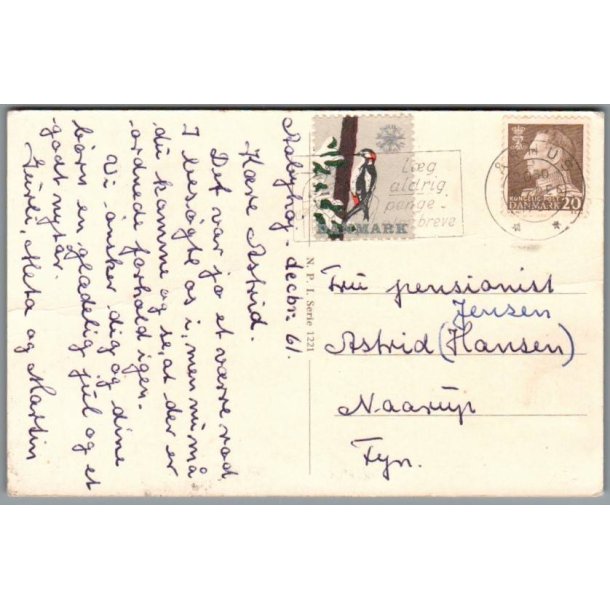 Aabyhøj - decbr. 61.
Kære Astrid.
Det var jo et værre rod
I besøgte os i, men nu må
du komme og se, at der er
ordnede forhold igen.
Vi ønsker dig og dine
børn en glædelig jul og et
godt nytår.
Meta og Martin
DANMARK
Læg
aldrig
penge
breve
KONGELIG POST
DANMARK 20
N. P. I. Serie 1221
Fru pensionist
Jensen
Astrid (Hansen)
Naarup
Fyn.